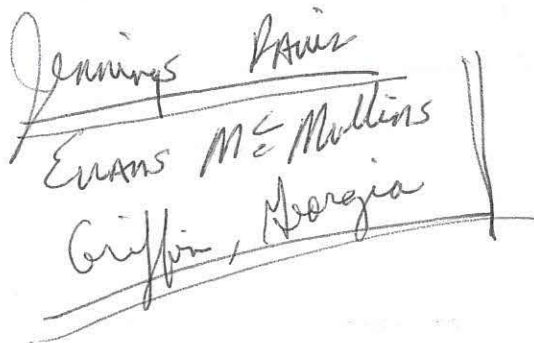 Jennings Davis
Evans McMullins
Griffin, Georgia